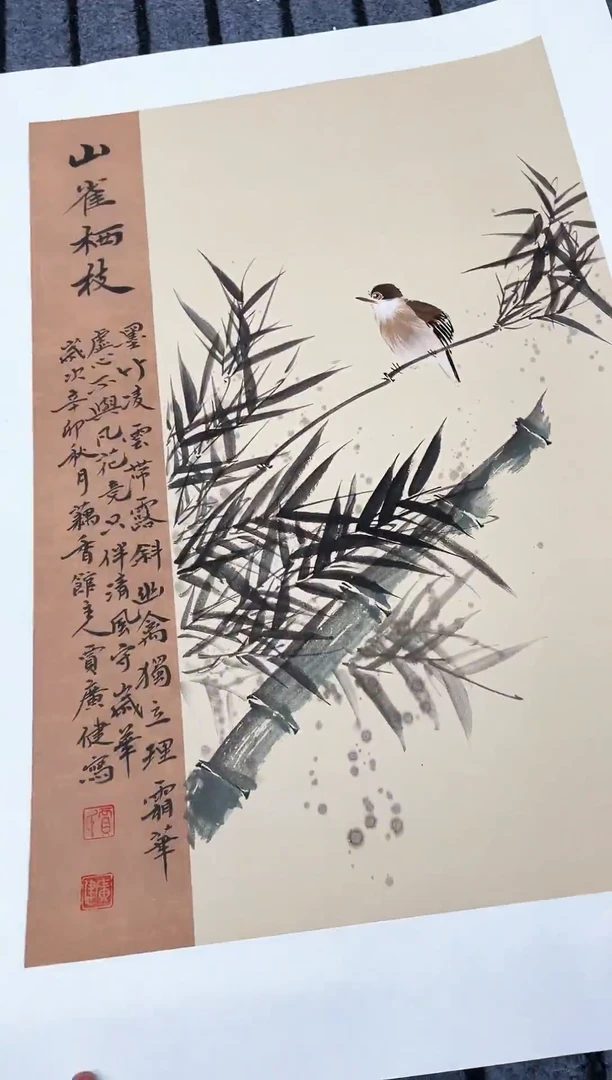 山雀栖枝
墨竹凌雲带露斜 幽禽獨立理霜華
虚心不與凡花竞 只伴清風守歳華
歳次辛卯秋月藕香館主賈廣健寫
賈
廣健